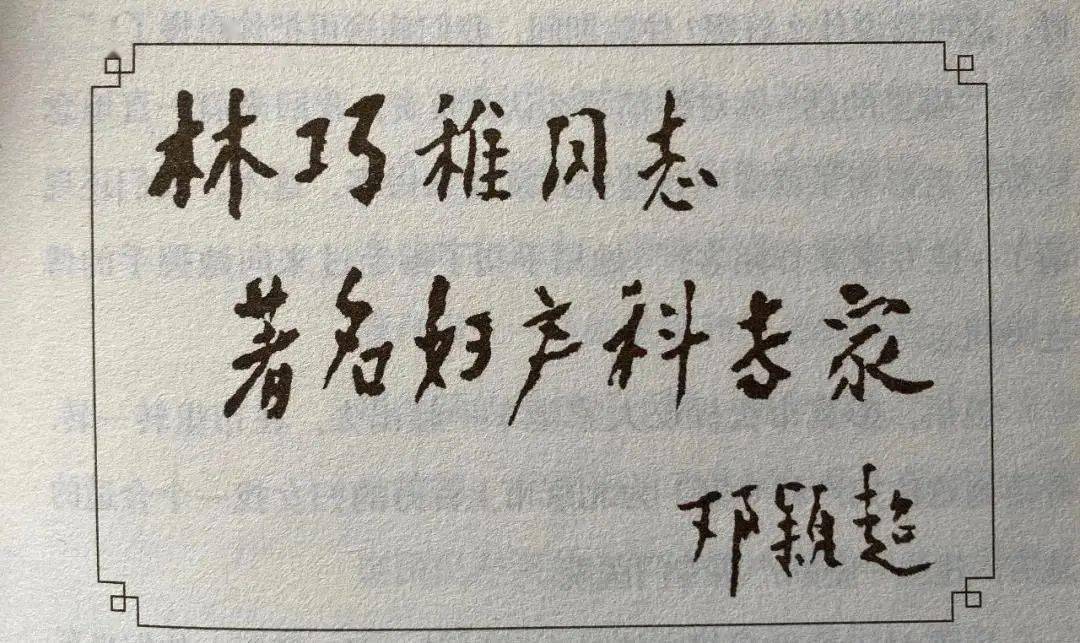 林巧稚同志
著名妇产科专家
邓颖超